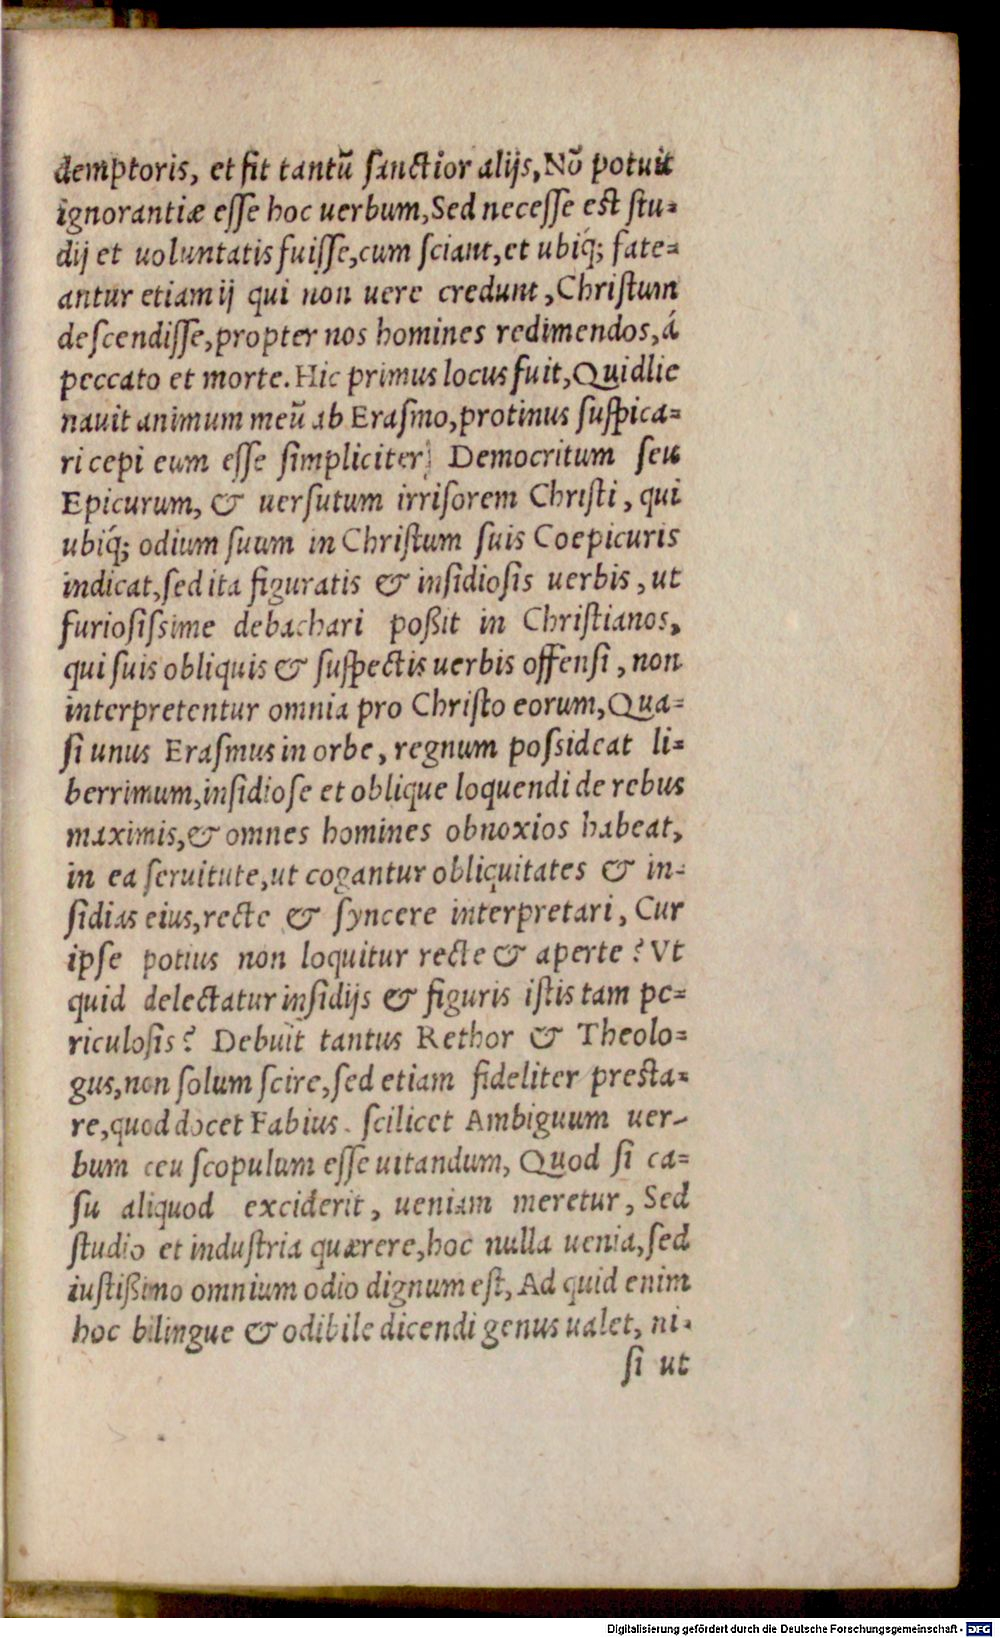 demptoris, et fit tantū sanctior alijs, Nō potuit
ignorantiæ esse hoc uerbum, Sed necesse est stu-
dij et uoluntatis fuisse, cum sciant, et ubiq́; fate-
antur etiam ij qui non uere credunt, Christum
descendisse, propter nos homines redimendos, á
peccato et morte. Hic primus locus fuit, Qui dlie
nauit animum meū ab Erasmo, protinus suspica-
ri cepi eum esse simpliciter Democritum seu
Epicurum, & uersutum irrisorem Christi, qui
ubiq́; odium suum in Christum suis Coepicuris
indicat, sed ita figuratis & insidiosis uerbis, ut
furiosissime debachari poßit in Christianos,
qui suis obliquis & suspectis uerbis offensi, non
interpretentur omnia pro Christo eorum, Qua-
si unus Erasmus in orbe, regnum possideat li-
berrimum, insidiose et oblique loquendi de rebus
maximis, & omnes homines obnoxios habeat,
in ea seruitute, ut cogantur obliquitates & in-
sidias eius, recte & syncere interpretari, Cur
ipse potius non loquitur recte & aperte? Vt
quid delectatur insidijs & figuris istis tam pe-
riculosis? Debuit tantus Rethor & Theolo-
gus, non solum scire, sed etiam fideliter presta-
re, quod docet Fabius. scilicet Ambiguum uer-
bum ceu scopulum esse uitandum, Quod si ca-
su aliquod exciderit, ueniam meretur, Sed
studio et industria quærere, hoc nulla uenia, sed
iustißimo omnium odio dignum est, Ad quid enim
hoc bilingue & odibile dicendi genus ualet, ni-
si ut
Digitalisierung gefördert durch die Deutsche Forschungsgemeinschaft - DFG